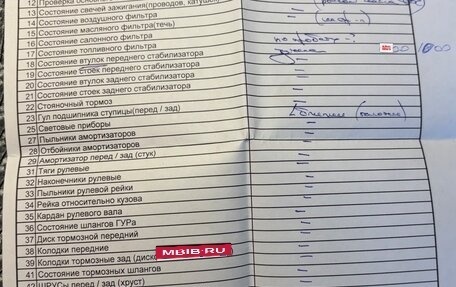 12 Проверка
13 Состояние свечей зажигания(проводов, катушек)
14 Состояние воздушного фильтра
15 Состояние масляного фильтра(течь)
16 Состояние салонного фильтра
17 Состояние топливного фильтра
18 Состояние втулок переднего стабилизатора
19 Состояние стоек переднего стабилизатора
20 Состояние втулок заднего стабилизатора
21 Состояние стоек заднего стабилизатора
22 Стояночный тормоз
23 Гул подшипника ступицы(перед / зад)
25 Световые приборы
27 Пыльники амортизаторов
28 Отбойники амортизаторов
29 Амортизатор перед / зад (стук)
31 Тяги рулевые
32 Наконечники рулевые
33 Пыльники рулевой рейки
34 Рейка относительно кузова
35 Кардан рулевого вала
36 Состояние шлангов ГУРа
37 Диск тормозной передний
38 Колодки передние
39 Колодки тормозные зад (диск
MBIB.RU
41 Состояние тормозных шлангов
42 ШРУСы перед / зад (хруст)